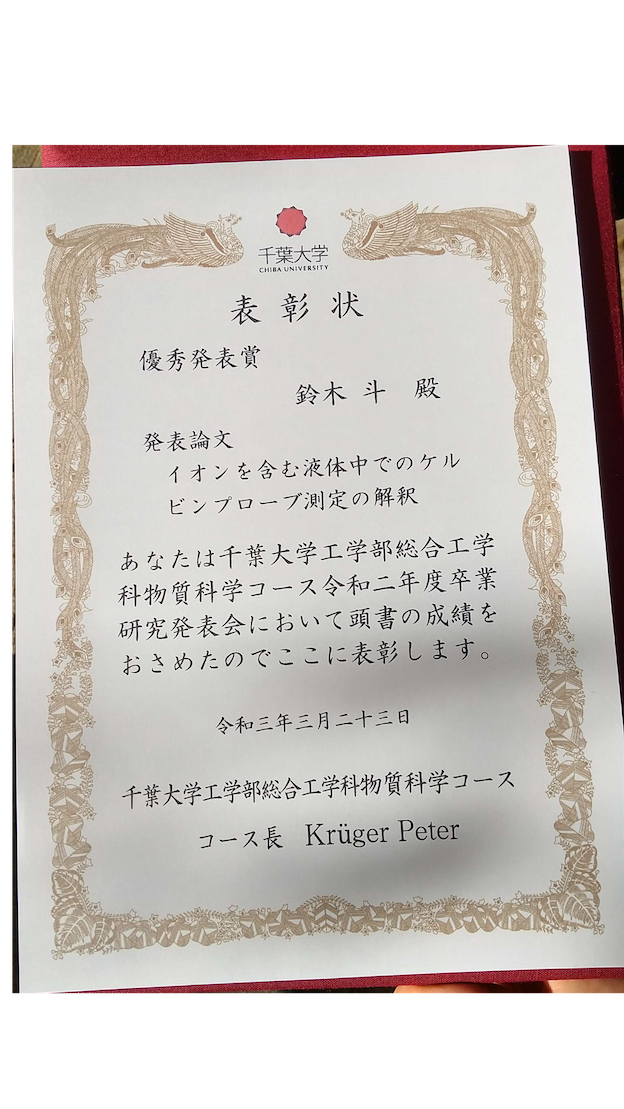 千葉大学
CHIBA UNIVERSITY
表彰状
優秀発表賞
鈴木 斗 殿
発表論文
イオンを含む液体中でのケル
ビンプローブ測定の解釈
あなたは千葉大学工学部総合工学
科物質科学コース令和二年度卒業
研究発表会において頭書の成績を
おさめたのでここに表彰します。
令和三年三月二十三日
千葉大学工学部総合工学科物質科学コース
コース長 Krüger Peter